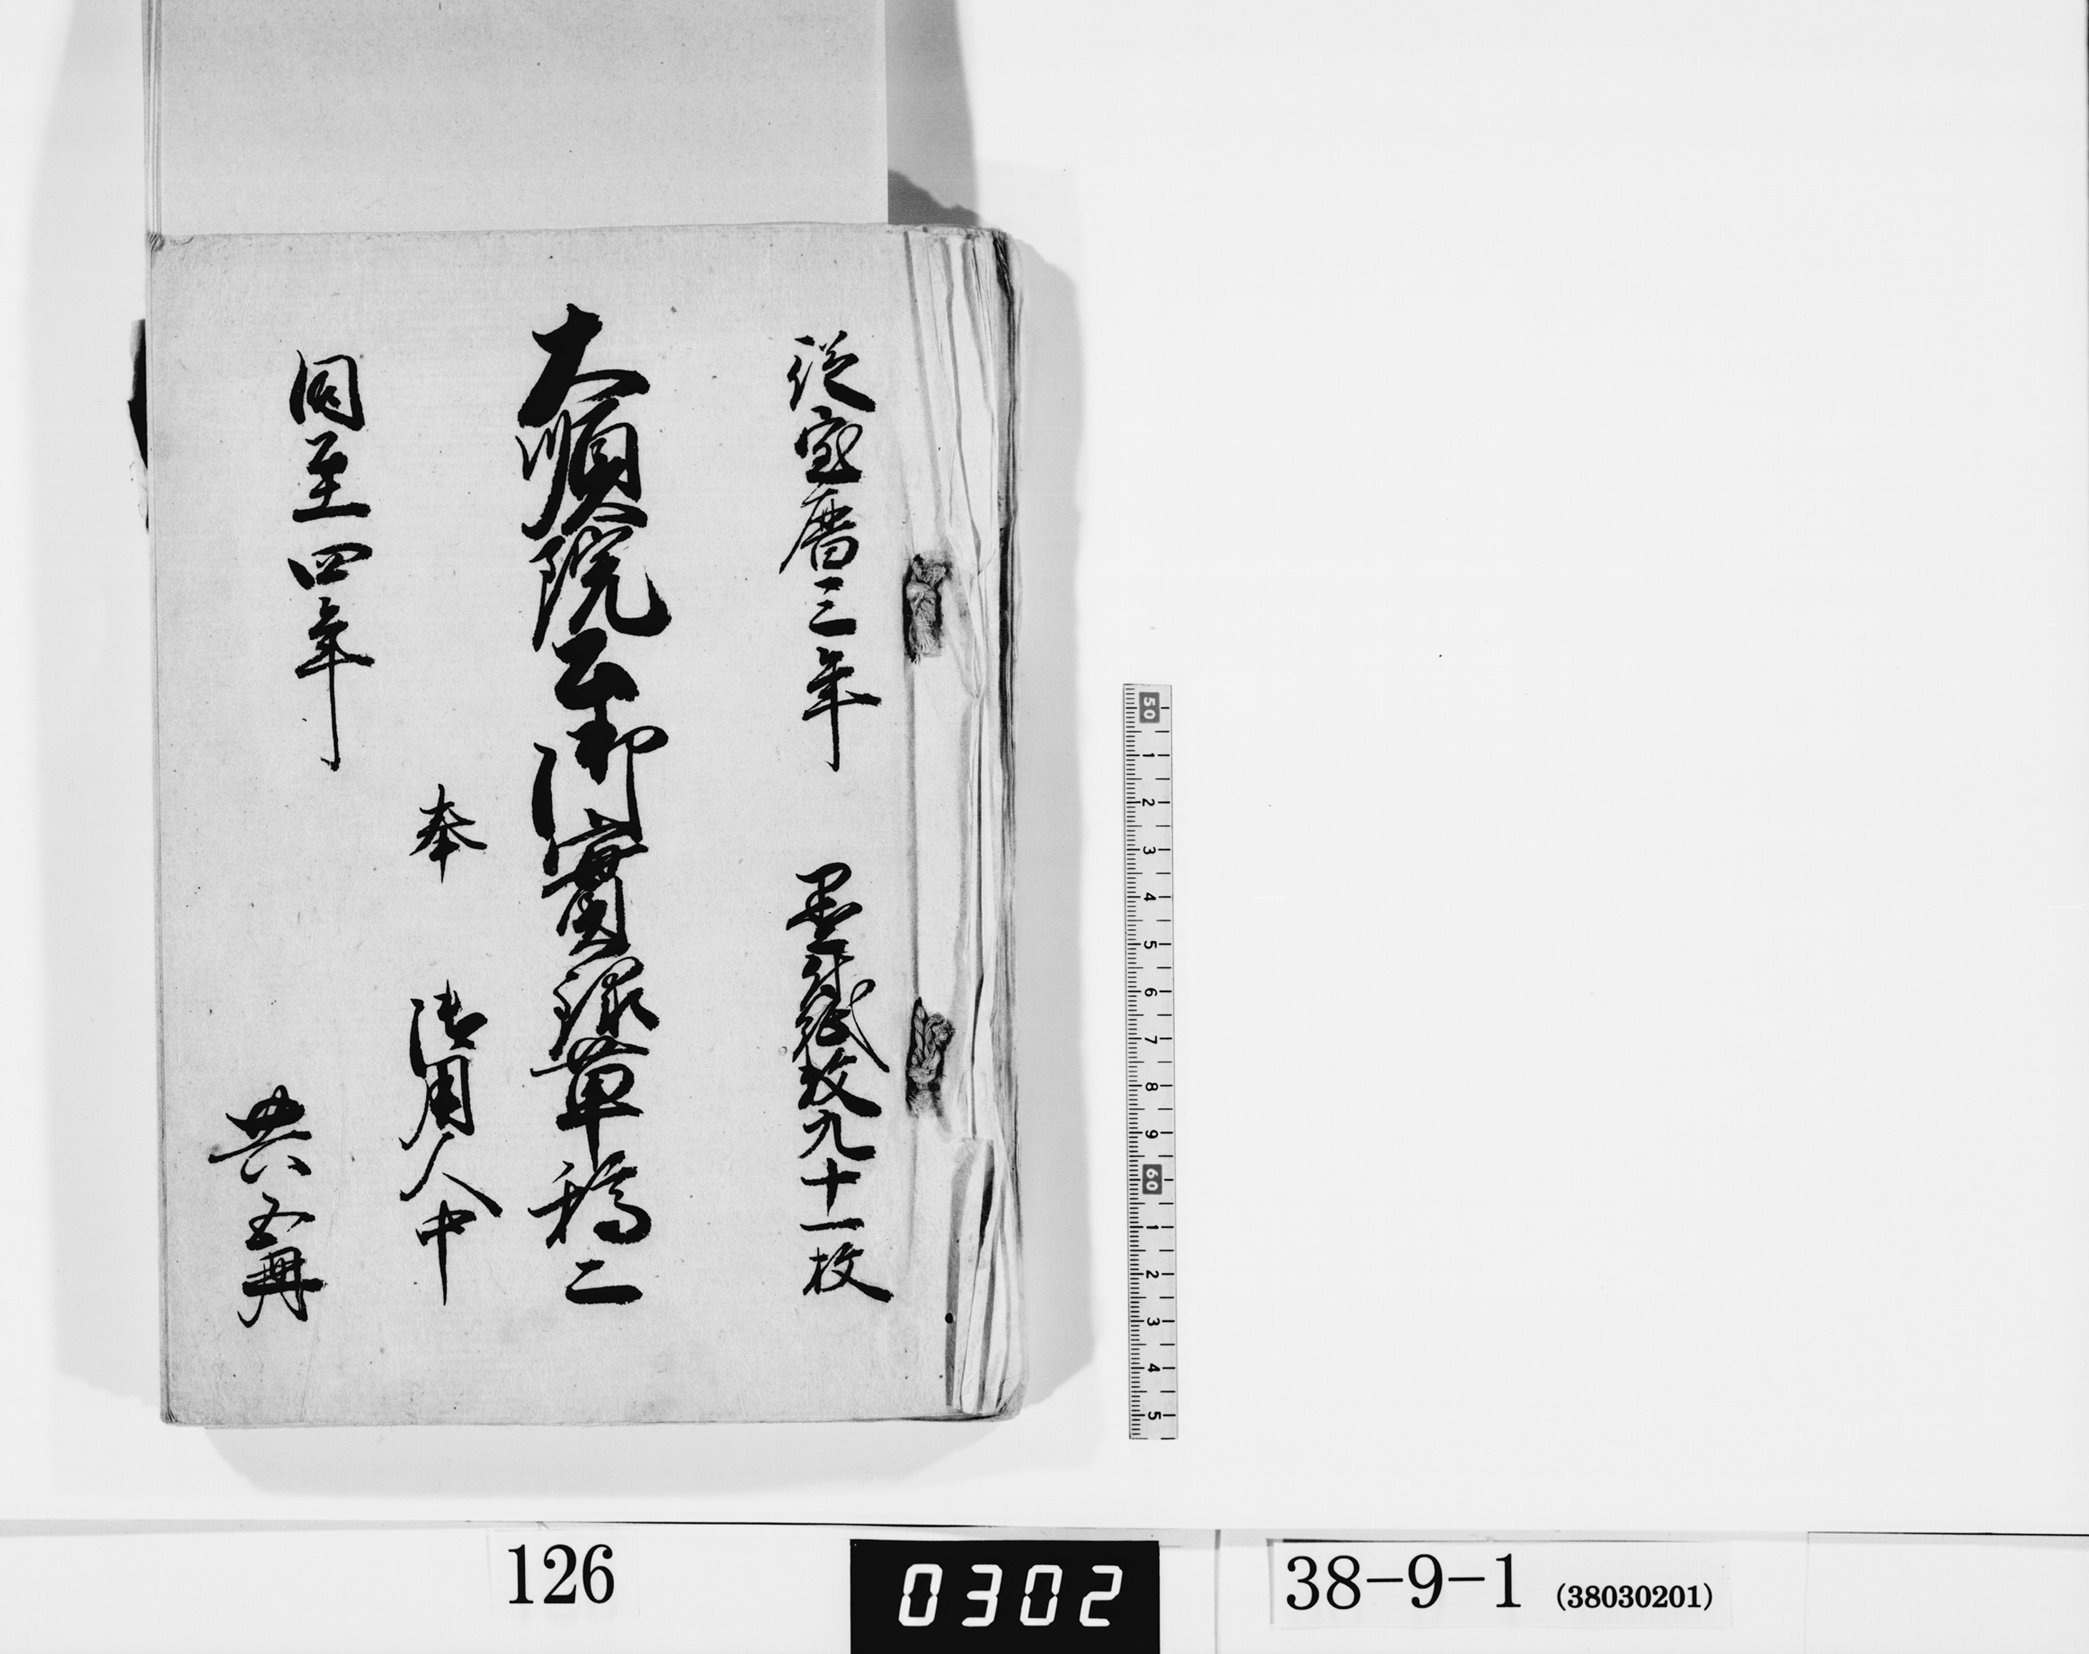 従宝暦三年 墨紙枚九十一枚
大順院公御實録草稿 二
奉 御用人中
同至四年
共五冊
50 1 2 3 4 5 6 7 8 9 60 1 2 3 4 5
126
0302
38-9-1 (38030201)